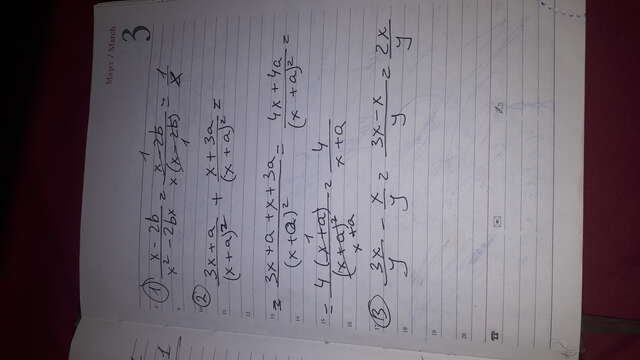 Março / March
3
1) (x - 2b)/(x² - 2bx) = (x - 2b)/(x(x - 2b)) = 1/x
2) (3x + a)/(x + a)² + (x + 3a)/(x + a)² =
= (3x + a + x + 3a)/(x + a)² = (4x + 4a)/(x + a)² =
= 4(x + a)/(x + a)² = 4/(x + a)
3) 3x/y - x/y = (3x - x)/y = 2x/y